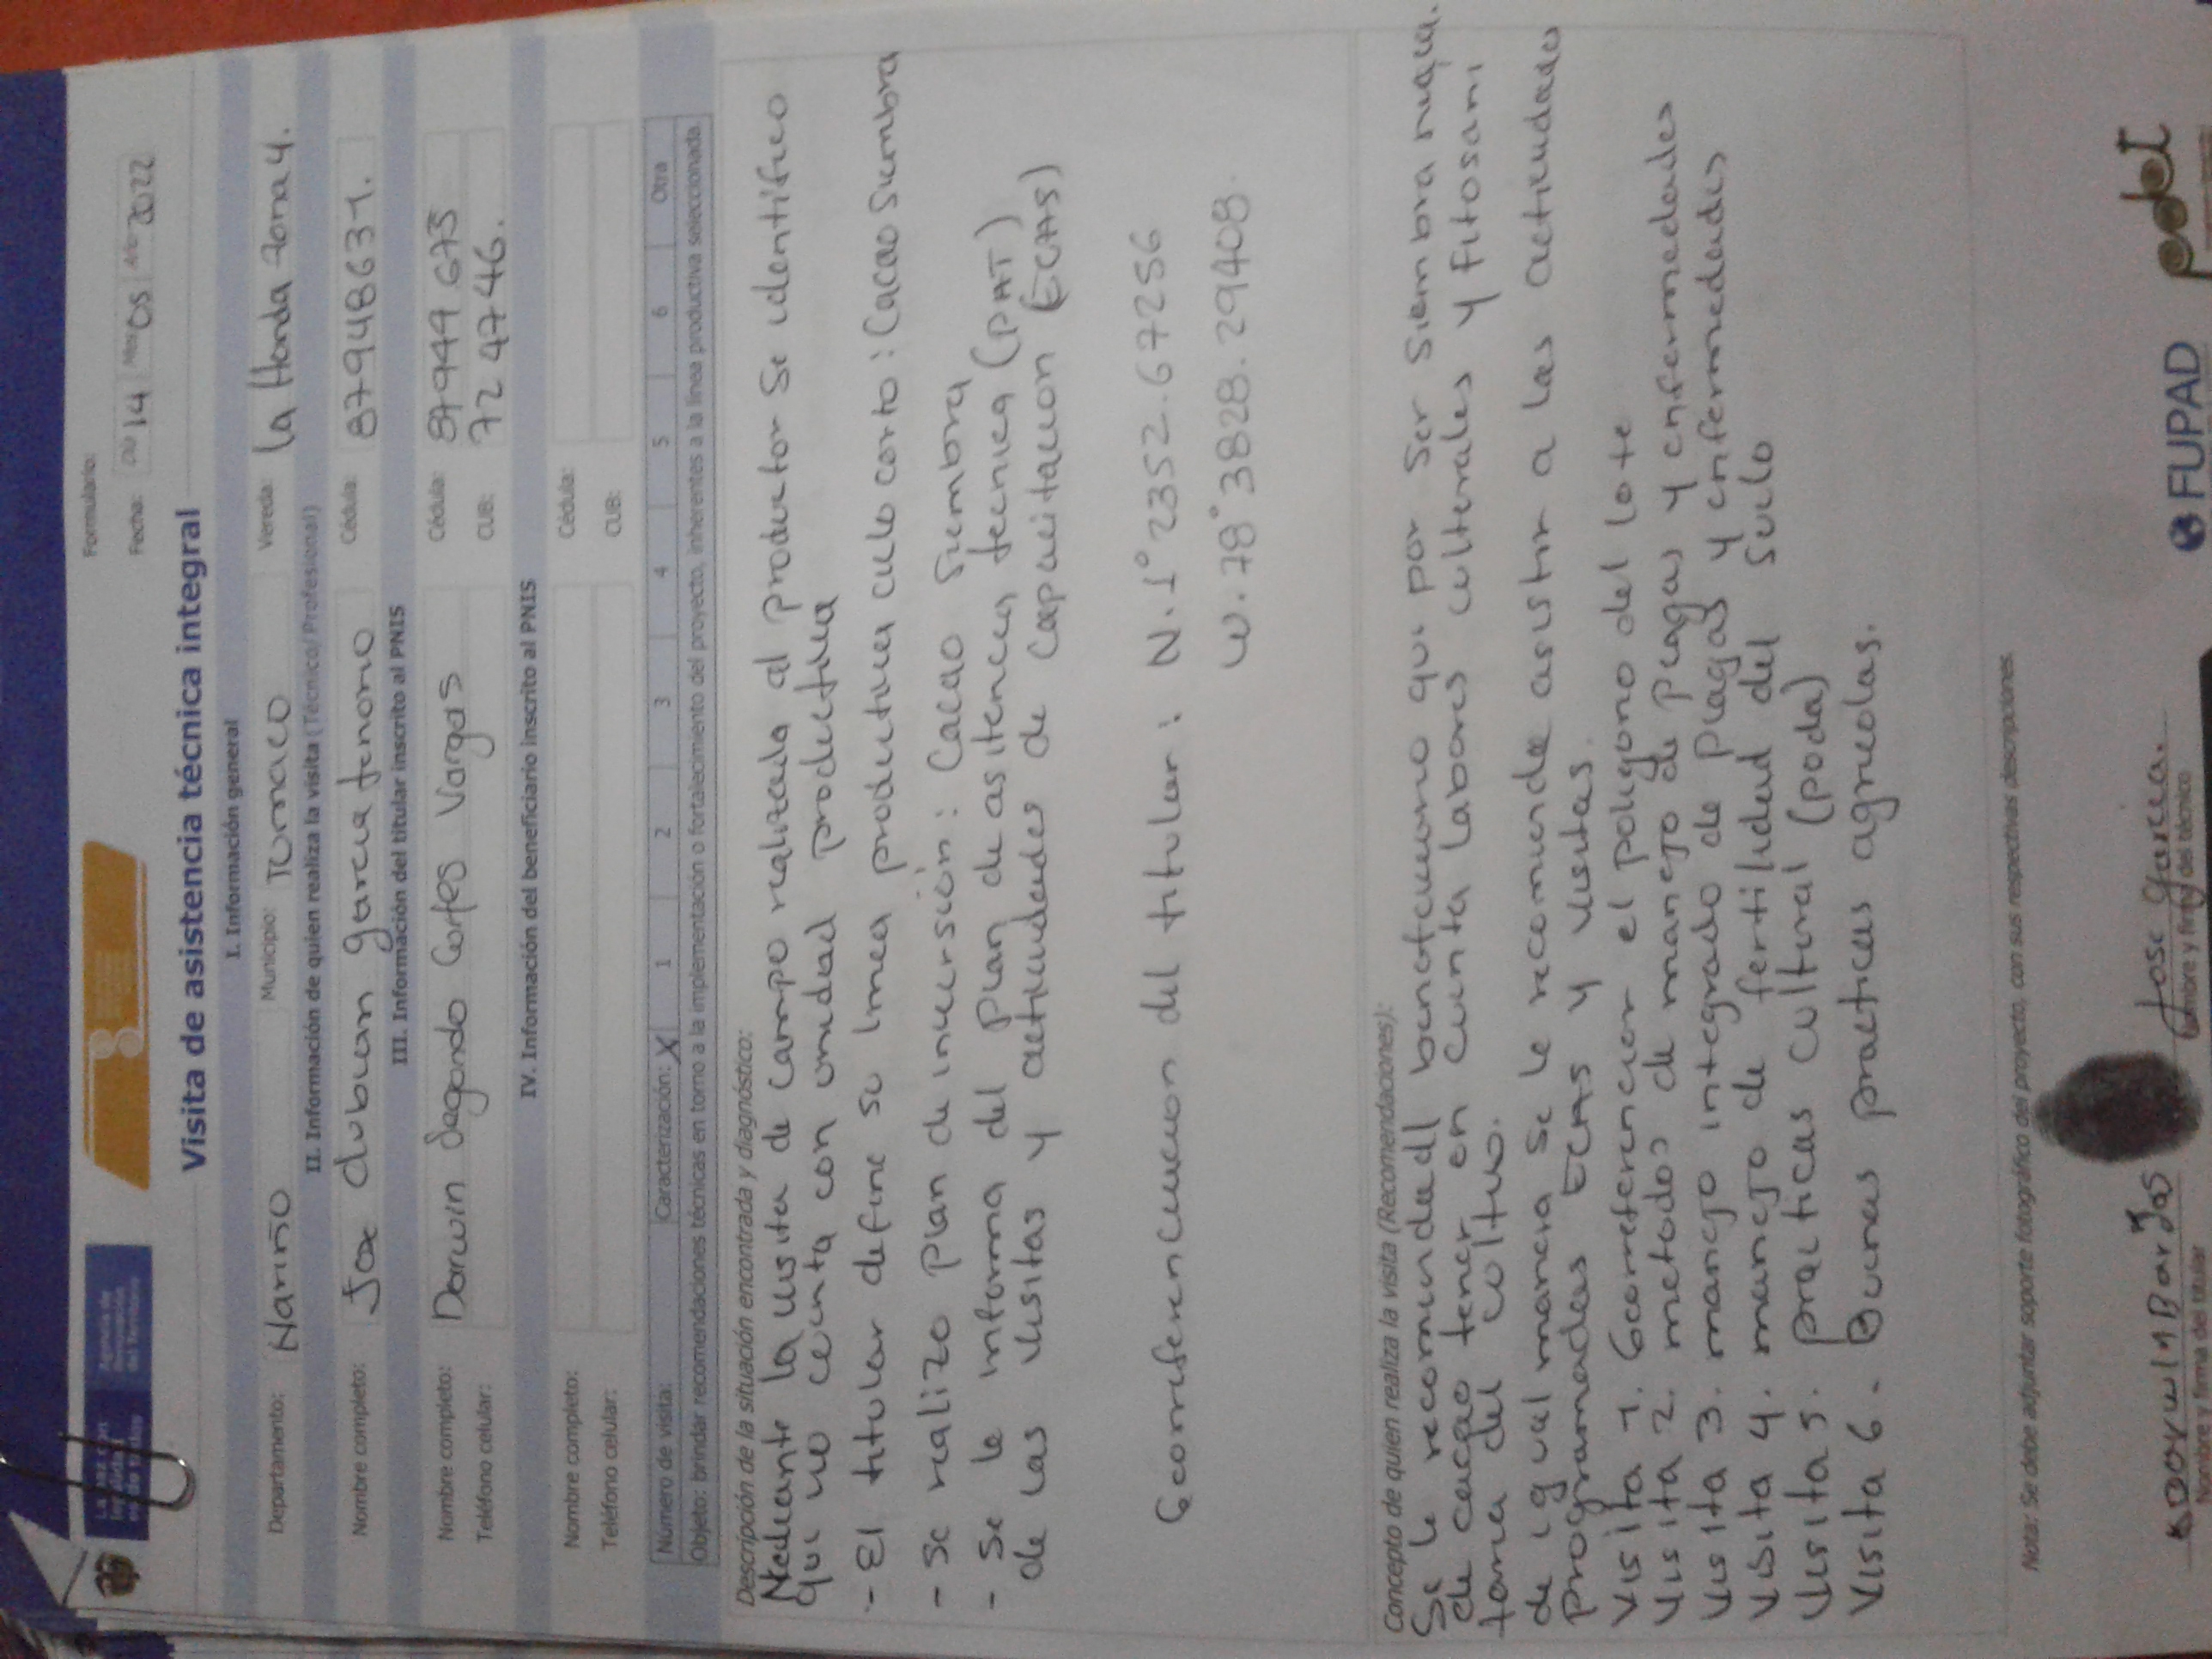 Formulario:
Fecha: Día 14 Mes 05 Año 2022
Agencia de
Renovación
del Territorio
Visita de asistencia técnica integral
I. Información general
Departamento: Nariño Municipio: Tumaco Vereda: la Honda zona 4.
II. Información de quien realiza la visita (Técnico/Profesional)
Nombre completo: Jose dubuan garcia tenorio Cédula: 87948631.
III. Información del titular inscrito al PNIS
Nombre completo: Darwin Segundo Cortes Vargas Cédula:
Teléfono celular: CUB: 72 47 46.
IV. Información del beneficiario inscrito al PNIS
Nombre completo: Cédula:
Teléfono celular: CUB:
Número de visita: Caracterización: X 1 2 3 4 5 6 Otra
Objeto: brindar recomendaciones técnicas en torno a la implementación o fortalecimiento del proyecto, inherentes a la línea productiva seleccionada.
Descripción de la situación encontrada y diagnóstico:
Mediante la visita de campo realizada al productor Se identifico
que no cuenta con unidad productiva
- El titular define su linea productiva ciclo corto: Cacao Siembra
- Se realizo Plan de inversión: Cacao Siembra
- Se le informa del Plan de asitencia tecnica (PAT)
de las visitas y actividades de Capacitacion (ECAS)
Georreferenciacion del titular: N. 1° 2352.67256
W. 78° 3828.29408.
Concepto de quien realiza la visita (Recomendaciones):
Se le recomienda al beneficiario que por Ser Siembra nueva
de cacao tener en cuenta labores culturales y fitosani
taria del cultivo.
de igual manera Se le recomienda asistir a las actividades
programadas ECAS y visitas.
Visita 1. Georreferenciar el poligono del lote
Visita 2. metodos de manejo de plagas y enfermedades
Visita 3. manejo integrado de Plagas y enfermedades
Visita 4. manejo de fertilidad del Suelo
Visita 5. practicas Cultural (poda)
Visita 6. Buenas practicas agricolas.
Nota: Se debe adjuntar soporte fotográfico del proyecto, con sus respectivas descripciones.
Jose Garcia.
Nombre y firma del titular Nombre y firma del técnico
FUPAD pedet